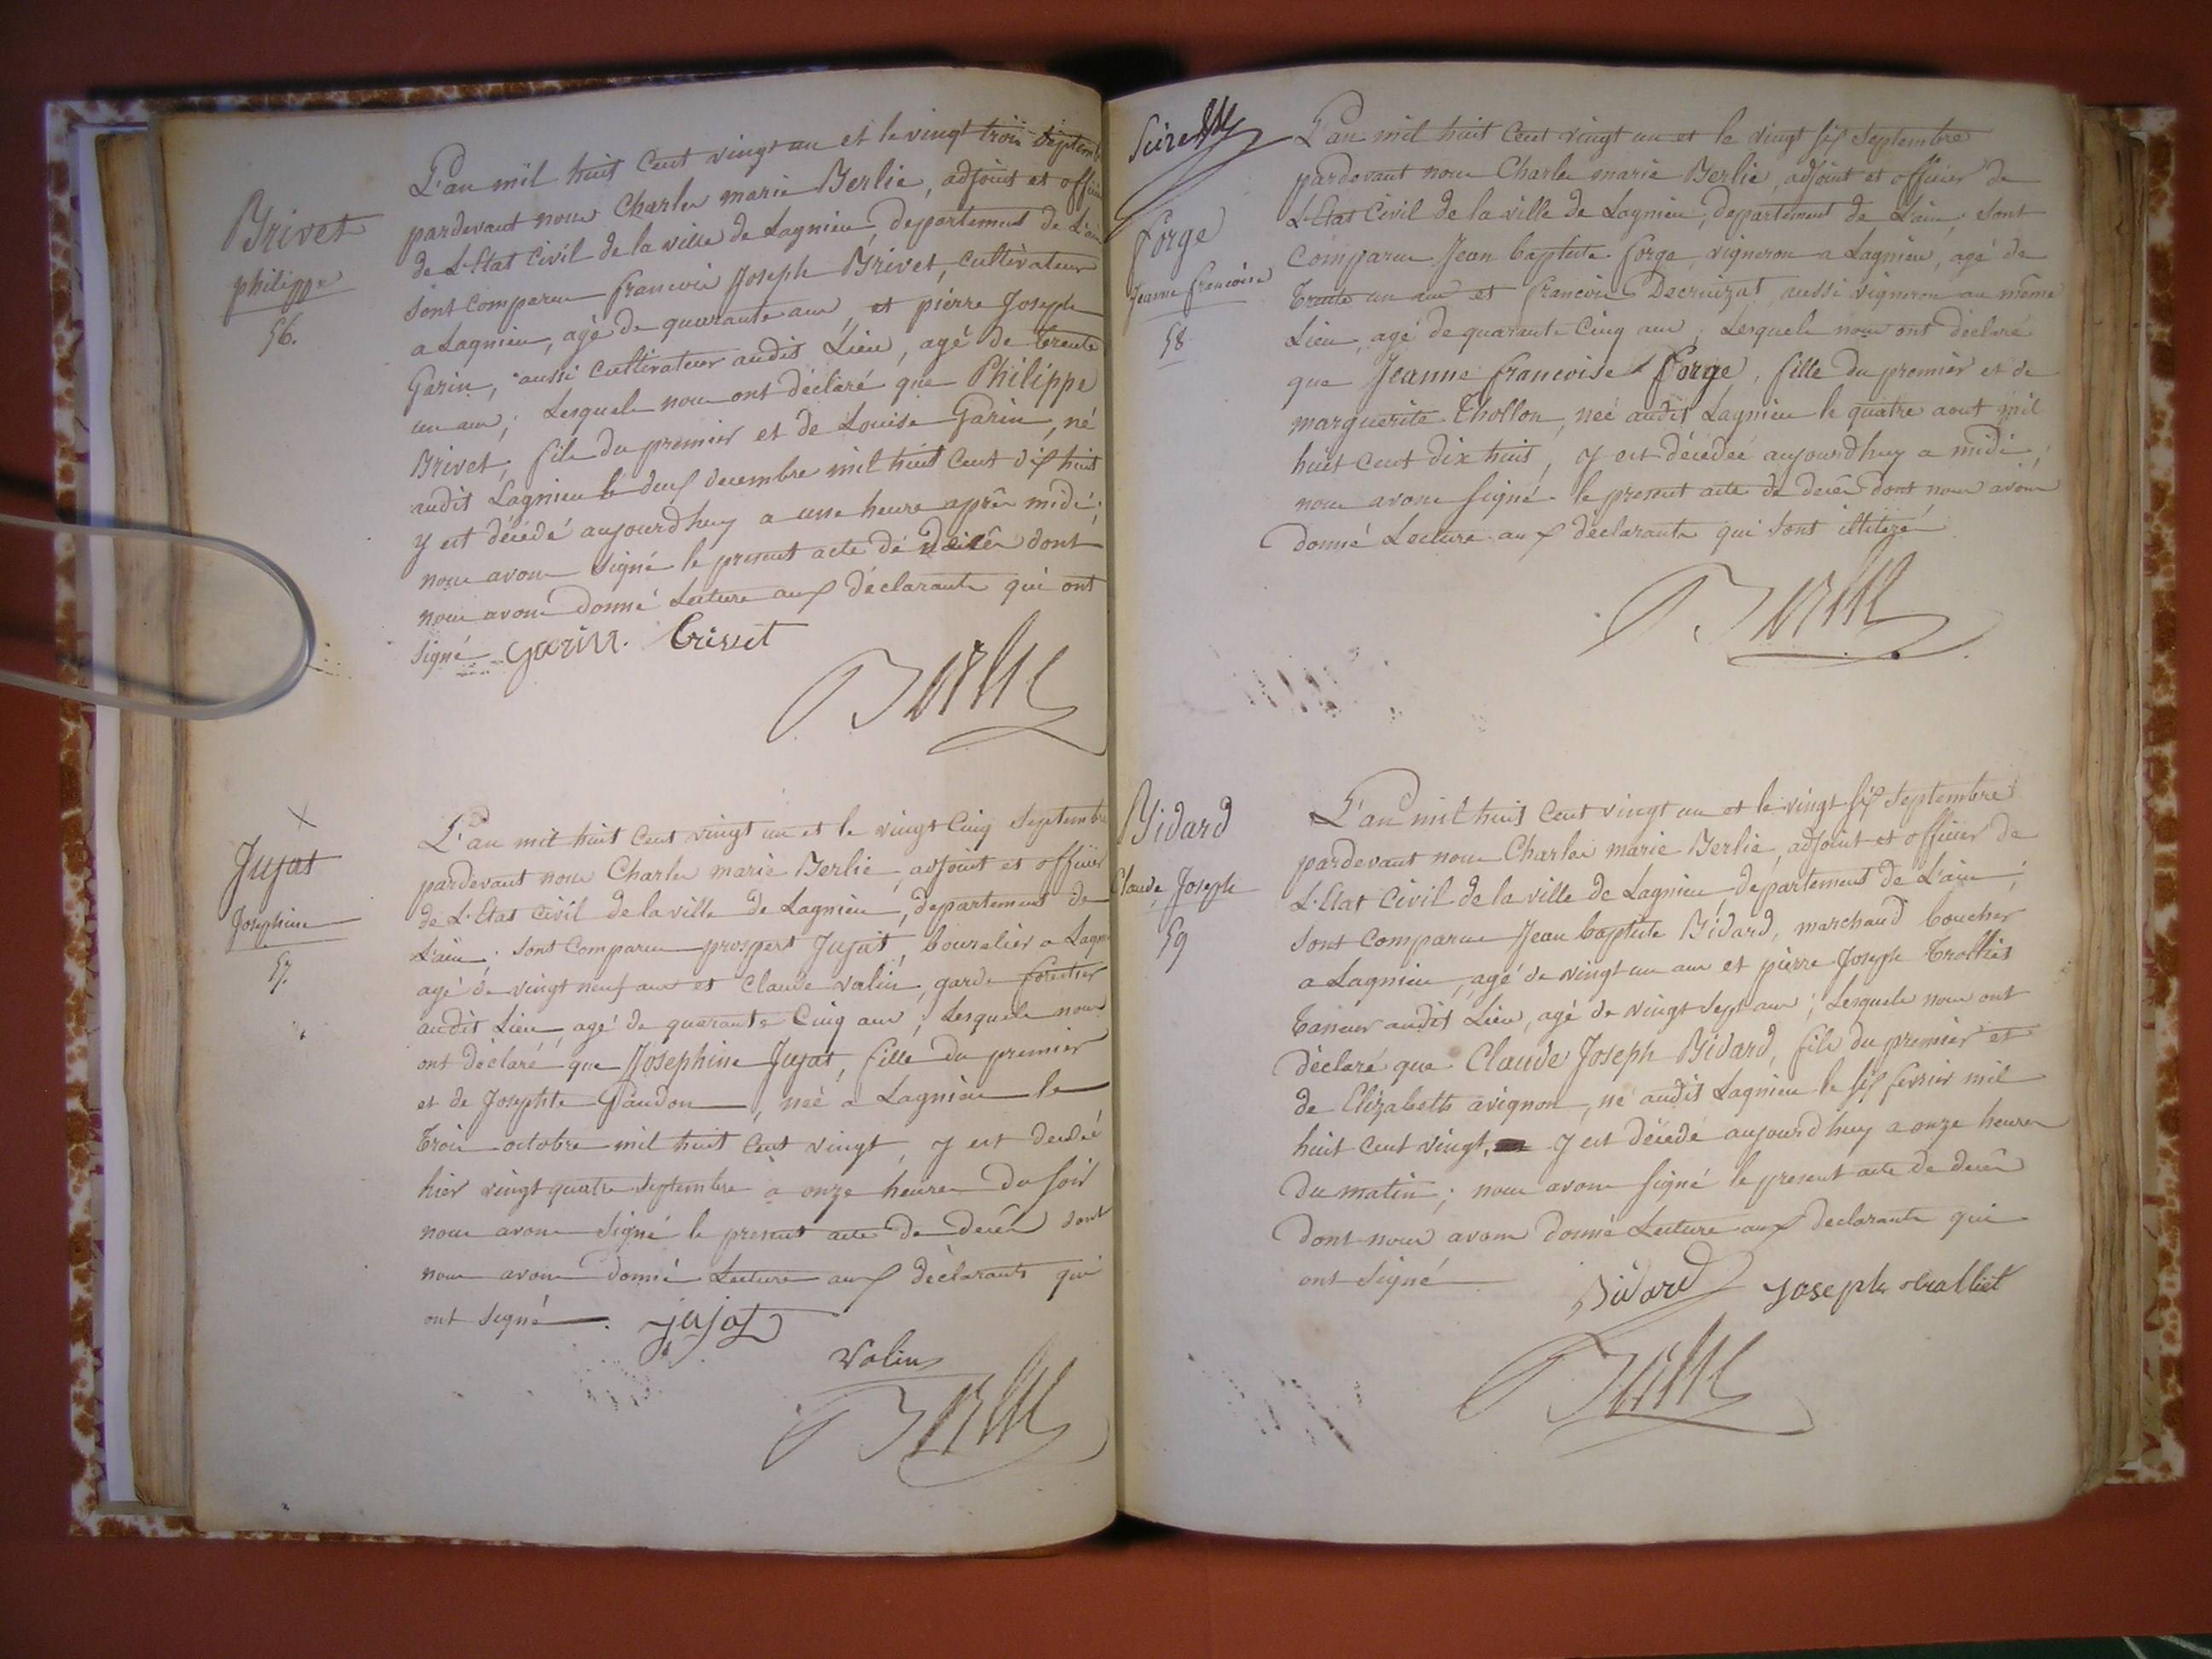 Brivet
philippe
56.
L'an mil huit Cent vingt un et le vingt trois septemb
pardevant nous Charles marie Berlie, adjoint et offici
de L'Etat Civil de la ville de Lagnieu, departement de L'ain
sont comparu francois Joseph Brivet, cultivateur
a Lagnieu, agé de quarante ans, et pierre Joseph
Garin, aussi cultivateur audit Lieu, agé de trente
un ans; Lesquels nous ont déclaré que Philippe
Brivet, fils du premier et de Louise Garin, né
audit Lagnieu le deux decembre mil huit Cent dix huit
y est décédé aujourdhuy a une heure après midi;
nous avons signé le present acte de décès dont
nous avons donné Lecture aux déclarants qui ont
signé garin. brivet
Berlie
Jujat
Josephine
57.
L'an mil huit Cent vingt un et le vingt Cinq Septembre
pardevant nous Charles marie Berlie, adjoint et officier
de L'Etat civil de la ville de Lagnieu, departement de
L'ain; sont Comparu prospert Jujat, bourelier a Lagni
agé de vingt neuf ans et Claude valin, garde forestier
audit Lieu, agé de quarante Cinq ans; Lesquels nous
ont déclaré que Josephine Jujat, fille du premier
et de Josephte Gaudon, née a Lagnieu le
trois octobre mil huit Cent vingt, y est decedée
hier vingt quatre septembre à onze heures du soir
nous avons signé le present acte de decès dont
nous avons donné Lecture aux déclarants qui
ont signé. jujat
Valin
Berlie
forge
Jeanne francoise
58
L'an mil huit Cent vingt un et le vingt six Septembre
pardevant nous Charles marie Berlie, adjoint et officier de
L'Etat Civil de la ville de Lagnieu, departement de L'ain, sont
Comparu Jean baptiste forge, vigneron a Lagnieu, agé de
trente un ans et francois Decruizat, aussi vigneron au même
Lieu, agé de quarante Cinq ans; Lesquels nous ont déclaré
que Jeanne francoise forge, fille du premier et de
marguerite Thollon, née audit Lagnieu le quatre aout mil
huit cent dix huit, y est décédée aujourdhuy a midi;
nous avons signé le present acte de decès dont nous avons
donné Lecture aux déclarants qui sont illitéré
Berlie
Bidard
Claude Joseph
59
L'an mil huit Cent vingt un et le vingt six Septembre
pardevant nous Charles marie Berlie, adjoint et officier de
L'Etat Civil de la ville de Lagnieu, departement de L'ain;
sont Comparu Jean baptiste Bidard, marchand boucher
a Lagnieu, agé de vingt un ans et pierre Joseph Trolliet
taneur audit Lieu, agé de vingt sept ans; Lesquels nous ont
déclaré que Claude Joseph Bidard, fils du premier et
de Elizabeth avignon, né audit Lagnieu le six fevrier mil
huit cent vingt, y est décédé aujourdhuy a onze heures
du matin; nous avons signé le present acte de decès
dont nous avons donné Lecture aux declarants qui
ont signé Bidard Joseph trolliet
Berlie